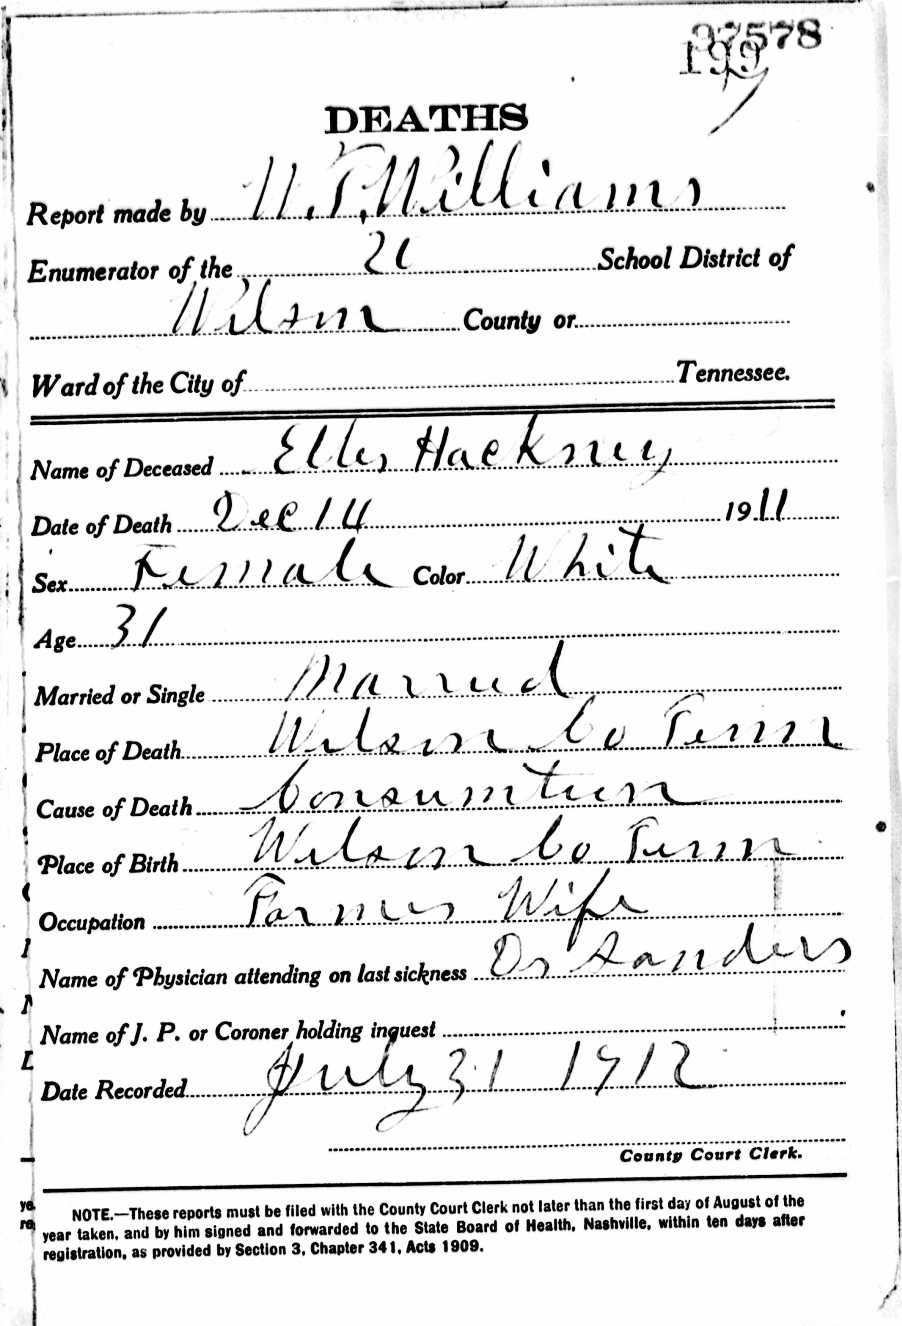 97578
199
DEATHS
Report made by W.T. Williams
Enumerator of the 21 School District of
Wilson County or
Ward of the City of Tennessee.
Name of Deceased Hackney
Date of Death Dec 14 1911
Sex Female Color White
Age 31
Married or Single Married
Place of Death Wilson Co Tenn
Cause of Death Consumtion
Place of Birth Wilson Co Tenn
Occupation Farmers Wife
Name of Physician attending on last sickness Dr Sanders
Name of J. P. or Coroner holding inquest
Date Recorded July 31 1912
County Court Clerk.
NOTE.—These reports must be filed with the County Court Clerk not later than the first day of August of the
year taken, and by him signed and forwarded to the State Board of Health, Nashville, within ten days after
registration, as provided by Section 3, Chapter 341, Acts 1909.